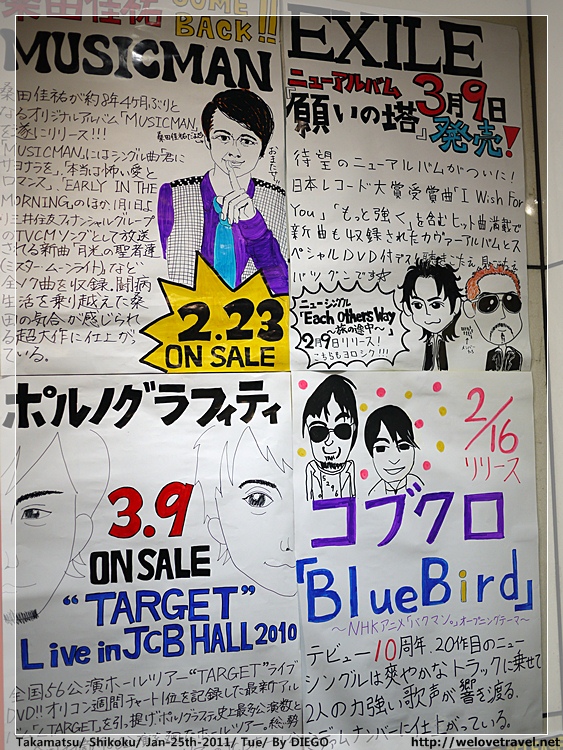 桑田佳祐 COME BACK!!
MUSICMAN
桑田佳祐が約8年4ヶ月ぶりと
なるオリジナルアルバム「MUSICMAN」
を遂にリリース!!!
「MUSICMAN」にはシングル曲「君に
サヨナラを」、「本当は怖い愛と
ロマンス」、「EARLY IN THE
MORNING」のほか、1月1日より
三井住友フィナンシャルグループ
のTVCMソングとして放送
される新曲「月光の聖者達
(ミスター・ムーンライト)」など、
全17曲を収録。闘病
生活を乗り越えた桑
田の気合が感じられ
る超大作に仕上がっ
ている。
2.23
ON SALE
EXILE
ニューアルバム
『願いの塔』
3月9日
発売!
待望のニューアルバムがついに!
日本レコード大賞受賞曲「I Wish For
You」「もっと強く」を含むヒット曲満載で
新曲も収録されたカヴァーアルバムとス
ペシャルDVD付で
バツグンです
ニューシングル
「Each Other's Way
〜旅の途中〜」
2月9日リリース!
こちらもヨロシク!!!
ポルノグラフィティ
3.9
ON SALE
"TARGET"
Live in JCB HALL 2010
全国56公演ホールツアー"TARGET"ライブ
DVD!!オリコン週間チャート1位を記録した最新アル
バム「TARGET」を引っ提げ、ポルノグラフィティ史上最多公演数と
2/16
リリース
コブクロ
「BlueBird」
〜NHKアニメ「バクマン。」オープニングテーマ〜
デビュー10周年、20作目のニュー
シングルは爽やかなトラックに乗せて
2人の力強い歌声が響き渡る、
ナンバーに仕上がっている。
Takamatsu/ Shikoku/ Jan-25th-2011/ Tue/ By DIEGO
http://welovetravel.net